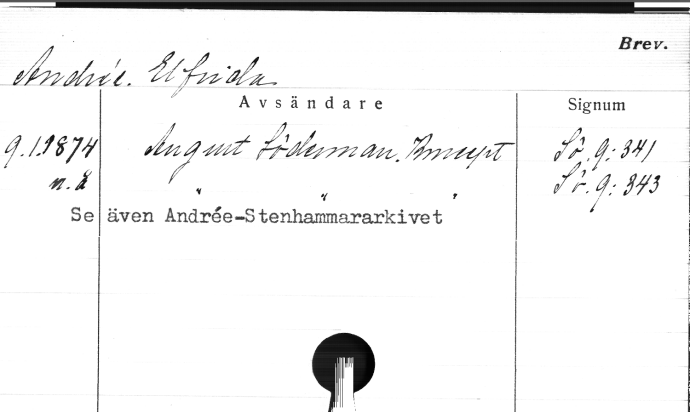 Brev.
Andrée. Elfrida
Avsändare Signum
9.1.1874 August Söderman. Koncept Sö. 9: 341
n.å " " " Sö. 9: 343
Se även Andrée-Stenhammararkivet